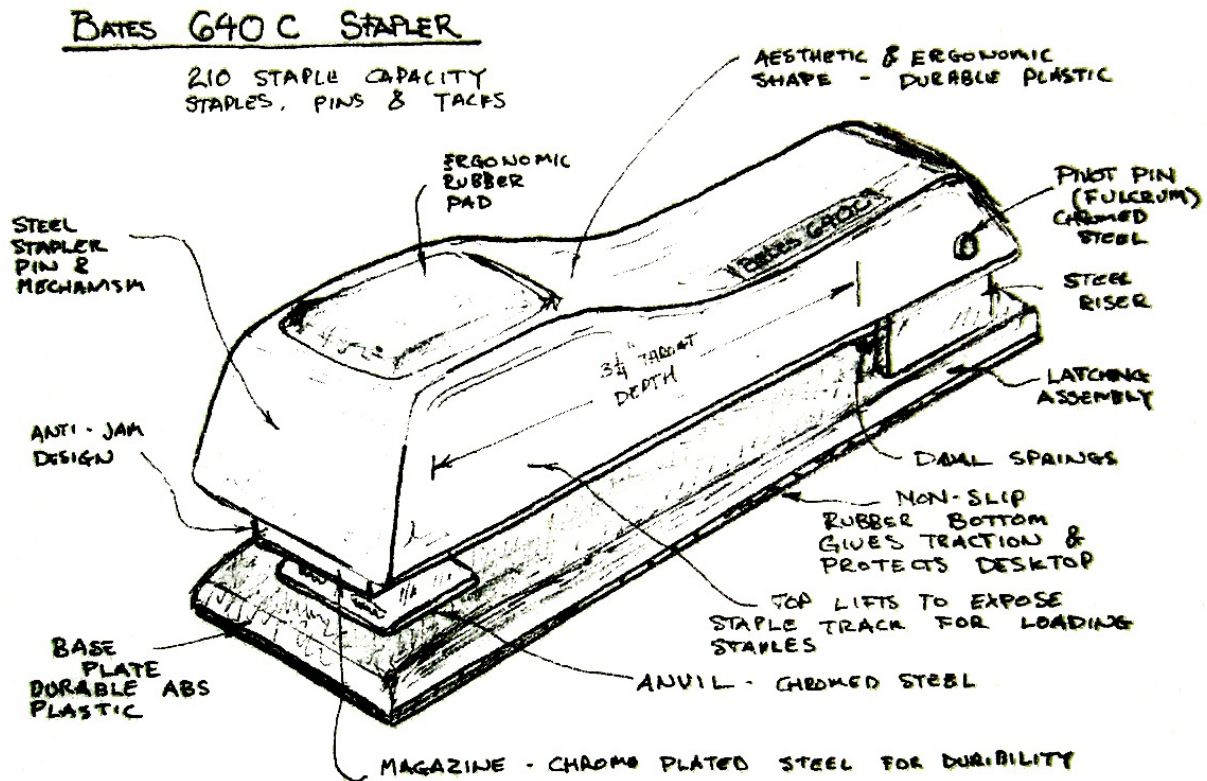 BATES 640 C STAPLER
210 STAPLE CAPACITY
STAPLES, PINS & TACKS
AESTHETIC & ERGONOMIC
SHAPE - DURABLE PLASTIC
ERGONOMIC
RUBBER
PAD
PIVOT PIN
(FULCRUM)
CHROMED
STEEL
STEEL
STAPLER
PIN &
MECHANISM
Bates 640C
STEEL
RISER
3 1/4" THROAT
DEPTH
LATCHING
ASSEMBLY
ANTI-JAM
DESIGN
DUAL SPRINGS
NON-SLIP
RUBBER BOTTOM
GIVES TRACTION &
PROTECTS DESKTOP
TOP LIFTS TO EXPOSE
STAPLE TRACK FOR LOADING
STAPLES
BASE
PLATE
DURABLE ABS
PLASTIC
ANVIL - CHROMED STEEL
MAGAZINE - CHROME PLATED STEEL FOR DURIBILITY